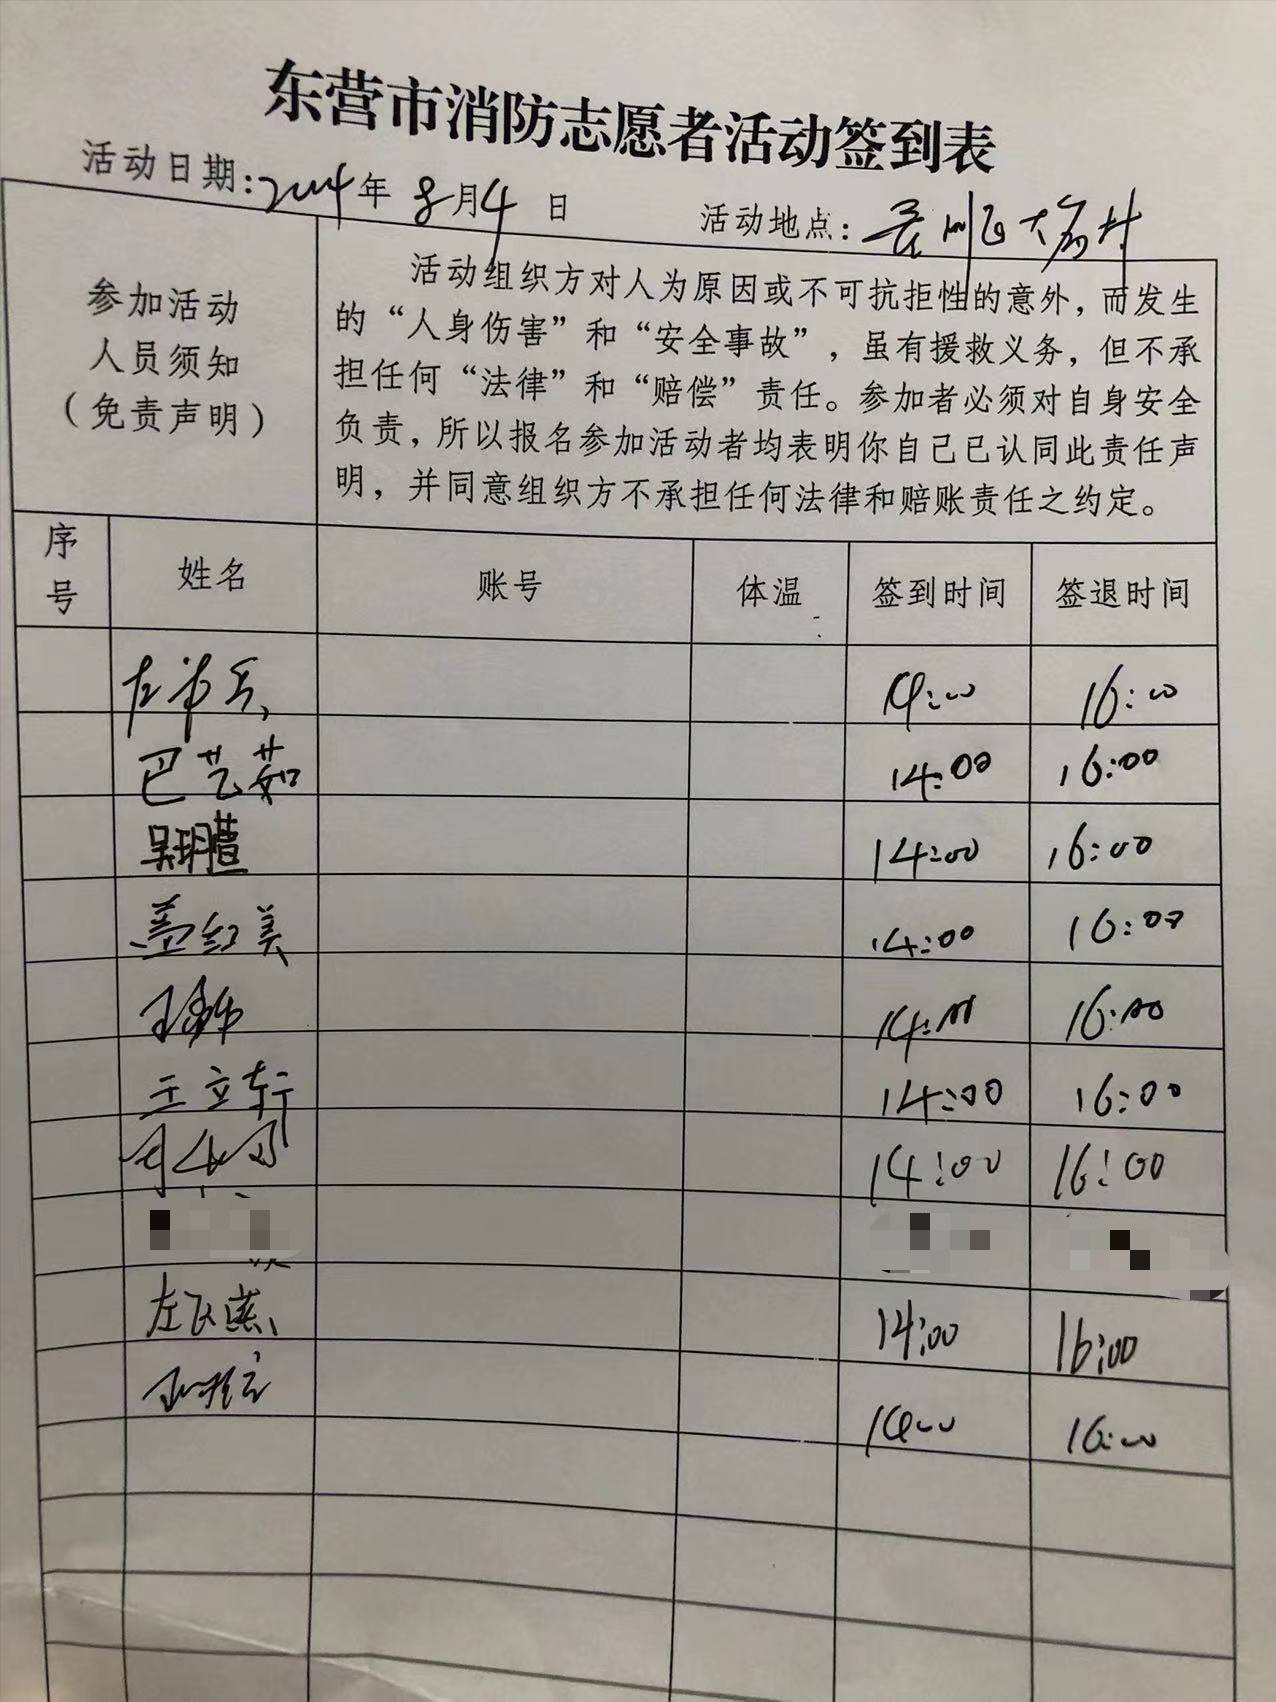 东营市消防志愿者活动签到表
活动日期: 2024年 8月4日 活动地点:
参加活动
人员须知
（免责声明）
活动组织方对人为原因或不可抗拒性的意外，而发生
的“人身伤害”和“安全事故”，虽有援救义务，但不承
担任何“法律”和“赔偿”责任。参加者必须对自身安全
负责，所以报名参加活动者均表明你自己已认同此责任声
明，并同意组织方不承担任何法律和赔账责任之约定。
序号 姓名 账号 体温 签到时间 签退时间
14:00 16:00
巴艺茹 14:00 16:00
吴玥萱 14:00 16:00
盖红美 14:00 16:00
14:00 16:00
王立轩 14:00 16:00
14:00 16:00
左飞燕 14:00 16:00
1400 16:00